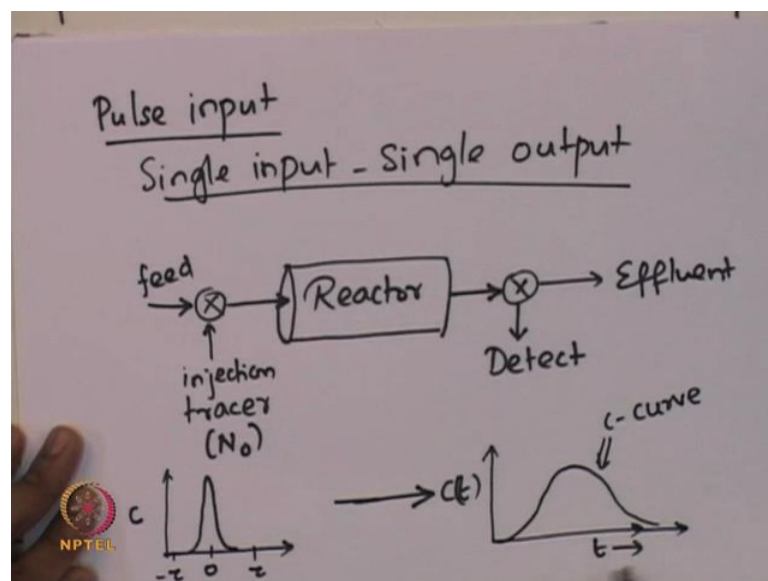 Pulse input
Single input - Single output
feed
Reactor
Effluent
injection
tracer
(N₀)
Detect
C
-τ 0 τ
C(t)
c-curve
t →
NPTEL